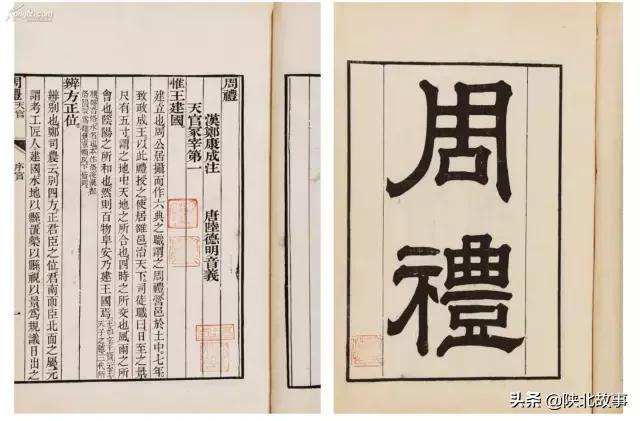 周禮
漢鄭康成注
唐陸德明音義
天官冢宰第一
惟王建國
建立也周公居攝而作六典之職謂之周禮營邑於土中七年
致政成王以此禮授之使居雒邑治天下司徒職曰日至之景
尺有五寸謂之地中天地之所合也四時之所交也風雨之所
會也陰陽之所和也然則百物阜安乃建王國焉
辨方正位
辨別也鄭司農云別四方正君臣之位君南面臣北面之屬元
謂考工匠人建國水地以縣置槷以縣視以景爲規識日出之
周禮 天官 序官 一
周禮
头条 @陕北故事